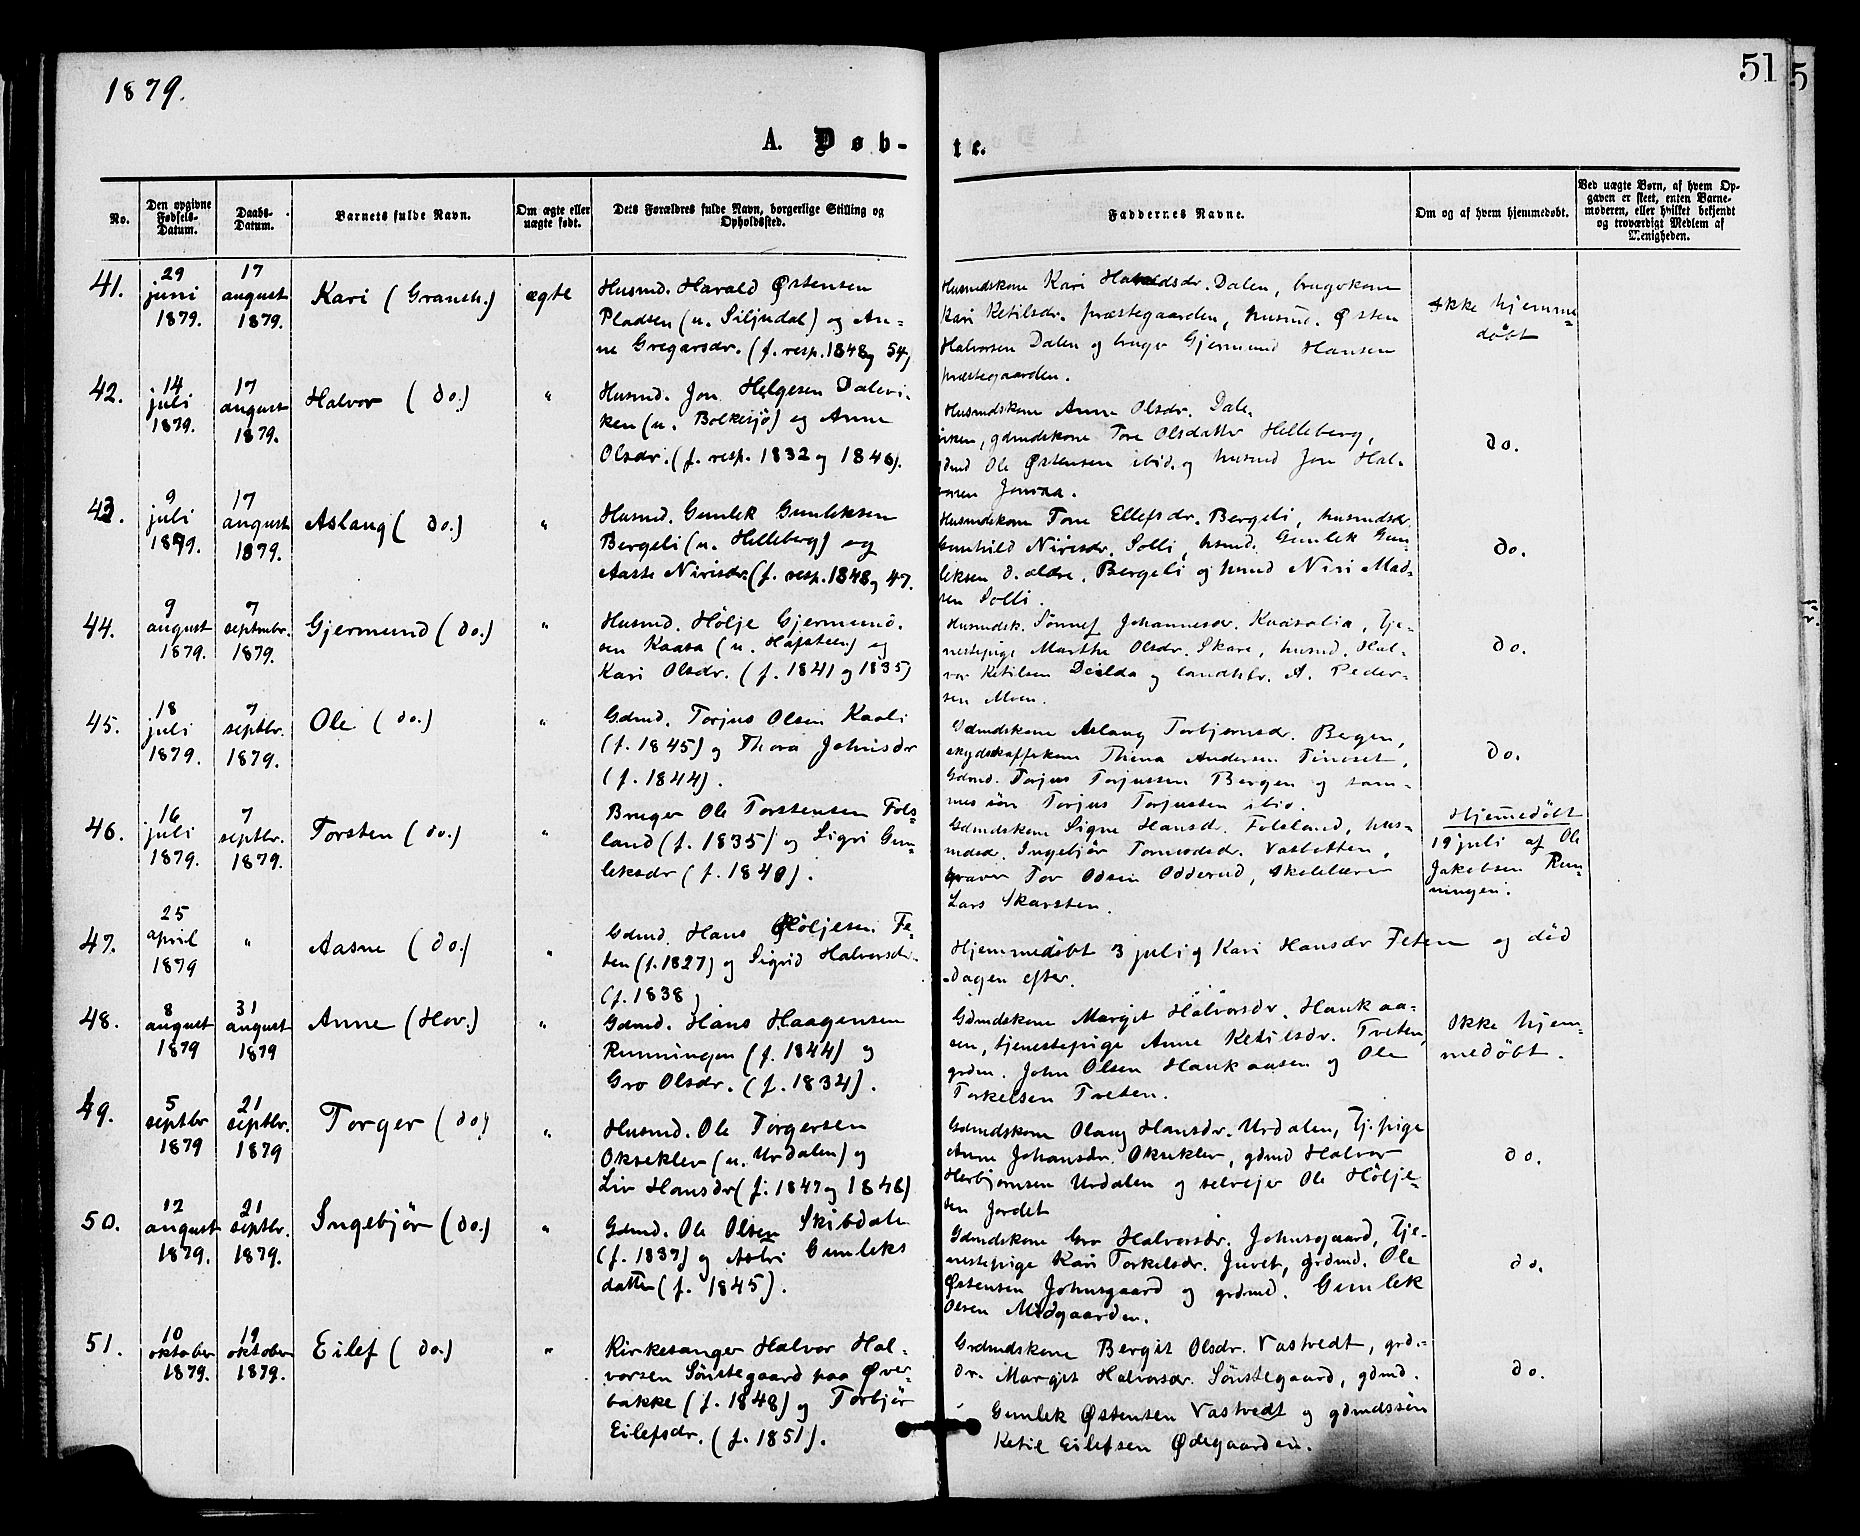 1879.
51
5
A. Døb-
te.
No.
Den opgivne Fødsels-Datum.
Daabs-Datum.
Barnets fulde Navn.
Om ægte eller uægte født.
Dets Forældres fulde Navn, borgerlige Stilling og Opholdssted.
Faddernes Navne.
Om og af hvem hjemmedøbt.
Ved uægte Børn, af hvem Opgaven er skeet, enten Barnemoderen, eller hvilket bekjendt og troværdigt Medlem af Menigheden.
41.
29 juni 1879.
17 august 1879.
Kari (Gransh.)
ægte
Husmd. Harald Østensen
Pladsen (u. Siljudal) og An-
ne Gregarsdr. (f. resp. 1848 og 54)
Husmdskone Kari Haraldsdr. Dalen, brugerkone
Kari Ketilsdr. præstegaarden, husmd. Østen
Halvorsen Dalen og bruger Gjermund Hansen
præstegaarden.
Ikke hjemme-
døbt
42.
14 juli 1879.
17 august 1879.
Halvor (do.)
"
Husmd. Jon Helgesen Dalevi-
ken (u. Bolkesjø) og Anne
Olsdr. (f. resp. 1832 og 1846).
Husmdskone Anne Olsdr. Dale-
viken, gdmdskone Tore Olsdatter Helleberg,
gdmd Ole Østensen ibid. og husmd Jon Hal-
vorsen Jonsaa.
do.
43.
9 juli 1879.
17 august 1879.
Aslaug (do.)
"
Husmd. Gunlek Gunleksen
Bergeli (u. Helleberg) og
Aaste Nirisdr. (f. resp. 1848 og 47.
Husmdskone Tone Ellefsdr. Bergeli, husmdsdr.
Gunhild Nirisdr. Solli, husmd. Gunlek Gun-
leksen d. ældre, Bergeli og husmd Niri Mad-
sen Solli.
do.
44.
9 august 1879.
7 septmbr. 1879.
Gjermund (do.)
"
Husmd. Hølje Gjermund-
sen Kaasa (u. Hafsteen) og
Kari Olsdr. (f. 1841 og 1835)
Husmdsk. Sønnef Johannesdr. Kaasalia, Tje-
nestepige Marthe Olsdr. Skare, husmd. Hal-
vor Ketilsen Deilda og landhdlr. A. Peder-
sen Moen.
do.
45.
18 juli 1879.
7 septbr. 1879.
Ole (do.)
"
Gdmd. Torjus Olsen Kaali
(f. 1845) og Thora Johnsdr
(f. 1844).
Gdmdskone Aslaug Torbjørnsdr. Bergen,
skydsskafferkone Thina Andersen Tinoset,
Gdmd. Torjus Torjussen Bergen og sam-
mes søn Torjus Torjussen ibid.
do.
46.
16 juli 1879.
7 septbr. 1879.
Torsten (do.)
"
Bruger Ole Torstensen Fols-
land (f. 1835) og Sigri Gun-
leksdr (f. 1840).
Gdmdskone Signe Hansdr. Folsland, hus-
mdsdr. Ingebjør Tormodsdr. Vasletten,
graver Tor Odsen Odderud, skolelærer
Lars Skarsten.
Hjemmedøbt
19 juli af Ole
Jakobsen Run-
ningen.
47.
25 april 1879
"
Aasne (do.)
"
Gdmd. Hans Høljesen Fe-
ten (f. 1827) og Sigrid Halvorsdr.
(f. 1838)
Hjemmedøbt 3 juli af Kari Hansdr Feten og død
Dagen efter.
48.
8 august 1879
31 august 1879
Anne (Hov.)
"
Gdmd. Hans Haagensen
Runningen (f. 1844) og
Gro Olsdr. (f. 1834).
Gdmdskone Margit Halvorsdr. Haukaa-
sen, tjenestepige Anne Ketilsdr. Tveten,
grdm. John Olsen Haukaasen og Ole
Torkelsen Tveten.
Ikke hjem-
medøbt.
49.
5 septbr 1879
21 septbr. 1879
Torger (do)
"
Husmd. Ole Torgersen
Okseklev (u. Urdalen) og
Liv Hansdr (f. 1847 og 1848)
Gdmdskone Olaug Hansdr. Urdalen, Tj.pige
Anne Johansdr. Okseklev, gdmd Halvor
Herbjørnsen Urdalen og selvejer Ole Hølje-
sen Jordet
do.
50.
12 august 1879.
21 septbr. 1879.
Ingebjør (do.)
"
Gdmd. Ole Olsen Skibdalen
(f. 1837) og Astri Gunleks
datter (f. 1845).
Gdmdskone Gro Halvorsdr. Johnsgaard, Tje-
nestepige Kari Torkelsdr. Juvet, grdmd. Ole
Østensen Johnsgaard og grdmd. Gunlek
Olsen Midgaarden.
do.
51.
10 oktober 1879.
19 oktober 1879.
Eilef (do.)
"
Kirkesanger Halvor Hal-
vorsen Sønstegaard paa Øver-
bakke (f. 1848) og Torbjør
Eilefsdr. (f. 1851).
Grdmdskone Bergit Olsdr. Vastvedt, grd.-
dr. Margit Halvorsdr. Sønstegaard, gdmd.
Gunlek Østensen Vastvedt og gdmdssøn
Ketil Eilefsen Ødegaarden.
do.